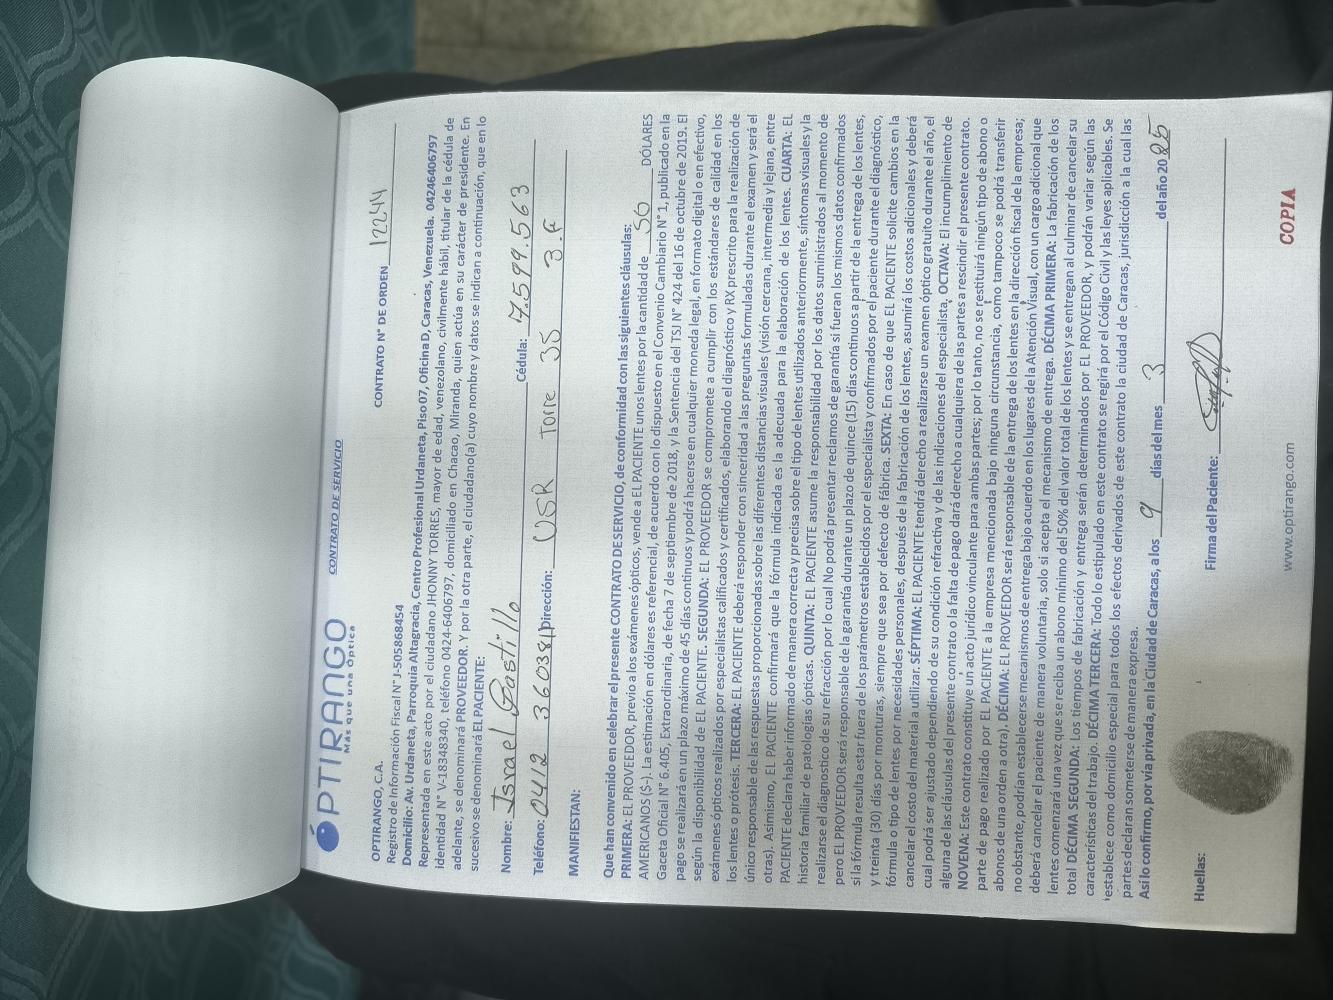 OPTIRANGO
Más que una Óptica
CONTRATO DE SERVICIO
OPTIRANGO, C.A.
CONTRATO N° DE ORDEN 12244
Registro de Información Fiscal N° J-505868454
Domicilio: Av. Urdaneta, Parroquia Altagracia, Centro Profesional Urdaneta, Piso 07, Oficina D, Caracas, Venezuela. 04246406797
Representada en este acto por el ciudadano JHONNY TORRES, mayor de edad, venezolano, civilmente hábil, titular de la cédula de
identidad N° V-18348340, teléfono 0424-6406797, domiciliado en Chacao, Miranda, quien actúa en su carácter de presidente. En
adelante, se denominará PROVEEDOR. Y por la otra parte, el ciudadano(a) cuyo nombre y datos se indican a continuación, que en lo
sucesivo se denominará EL PACIENTE:
Nombre: Israel Castillo Cédula: 7.599.563
Teléfono: 0412 3603811 Dirección: USR Torre 35 3.F
MANIFIESTAN:
Que han convenido en celebrar el presente CONTRATO DE SERVICIO, de conformidad con las siguientes cláusulas:
PRIMERA: EL PROVEEDOR, previo a los exámenes ópticos, vende a EL PACIENTE unos lentes por la cantidad de 50 DÓLARES
AMERICANOS ($-). La estimación en dólares es referencial, de acuerdo con lo dispuesto en el Convenio Cambiario N° 1, publicado en la
Gaceta Oficial N° 6.405, Extraordinaria, de fecha 7 de septiembre de 2018, y la Sentencia del TSJ N° 424 del 16 de octubre de 2019. El
pago se realizará en un plazo máximo de 45 días continuos y podrá hacerse en cualquier moneda legal, en formato digital o en efectivo,
según la disponibilidad de EL PACIENTE. SEGUNDA: EL PROVEEDOR se compromete a cumplir con los estándares de calidad en los
exámenes ópticos realizados por especialistas calificados y certificados, elaborando el diagnóstico y RX prescrito para la realización de
los lentes o prótesis. TERCERA: EL PACIENTE deberá responder con sinceridad a las preguntas formuladas durante el examen y será el
único responsable de las respuestas proporcionadas sobre las diferentes distancias visuales (visión cercana, intermedia y lejana, entre
otras). Asimismo, EL PACIENTE confirmará que la fórmula indicada es la adecuada para la elaboración de los lentes. CUARTA: EL
PACIENTE declara haber informado de manera correcta y precisa sobre el tipo de lentes utilizados anteriormente, síntomas visuales y la
historia familiar de patologías ópticas. QUINTA: EL PACIENTE asume la responsabilidad por los datos suministrados al momento de
realizarse el diagnostico de su refracción por lo cual No podrá presentar reclamos de garantía si fueran los mismos datos confirmados
pero EL PROVEEDOR será responsable de la garantía durante un plazo de quince (15) días continuos a partir de la entrega de los lentes,
si la fórmula resulta estar fuera de los parámetros establecidos por el especialista y confirmados por el paciente durante el diagnóstico,
y treinta (30) días por monturas, siempre que sea por defecto de fábrica. SEXTA: En caso de que EL PACIENTE solicite cambios en la
fórmula o tipo de lentes por necesidades personales, después de la fabricación de los lentes, asumirá los costos adicionales y deberá
cancelar el costo del material a utilizar. SÉPTIMA: EL PACIENTE tendrá derecho a realizarse un examen óptico gratuito durante el año, el
cual podrá ser ajustado dependiendo de su condición refractiva y de las indicaciones del especialista. OCTAVA: El incumplimiento de
alguna de las cláusulas del presente contrato o la falta de pago dará derecho a cualquiera de las partes a rescindir el presente contrato.
NOVENA: Este contrato constituye un acto jurídico vinculante para ambas partes; por lo tanto, no se restituirá ningún tipo de abono o
parte de pago realizado por EL PACIENTE a la empresa mencionada bajo ninguna circunstancia, como tampoco se podrá transferir
abonos de una orden a otra), DÉCIMA: EL PROVEEDOR será responsable de la entrega de los lentes en la dirección fiscal de la empresa;
no obstante, podrían establecerse mecanismos de entrega bajo acuerdo en los lugares de la Atención Visual, con un cargo adicional que
deberá cancelar el paciente de manera voluntaria, solo si acepta el mecanismo de entrega. DÉCIMA PRIMERA: La fabricación de los
lentes comenzará una vez que se reciba un abono mínimo del 50% del valor total de los lentes y se entregan al culminar de cancelar su
total DÉCIMA SEGUNDA: Los tiempos de fabricación y entrega serán determinados por EL PROVEEDOR, y podrán variar según las
características del trabajo. DÉCIMA TERCERA: Todo lo estipulado en este contrato se regirá por el Código Civil y las leyes aplicables. Se
establece como domicilio especial para todos los efectos derivados de este contrato la ciudad de Caracas, jurisdicción a la cual las
partes declaran someterse de manera expresa.
Así lo confirmo, por vía privada, en la Ciudad de Caracas, a los 9 días del mes 3 del año 2025
Huellas:
Firma del Paciente:
www.optirango.com
COPIA